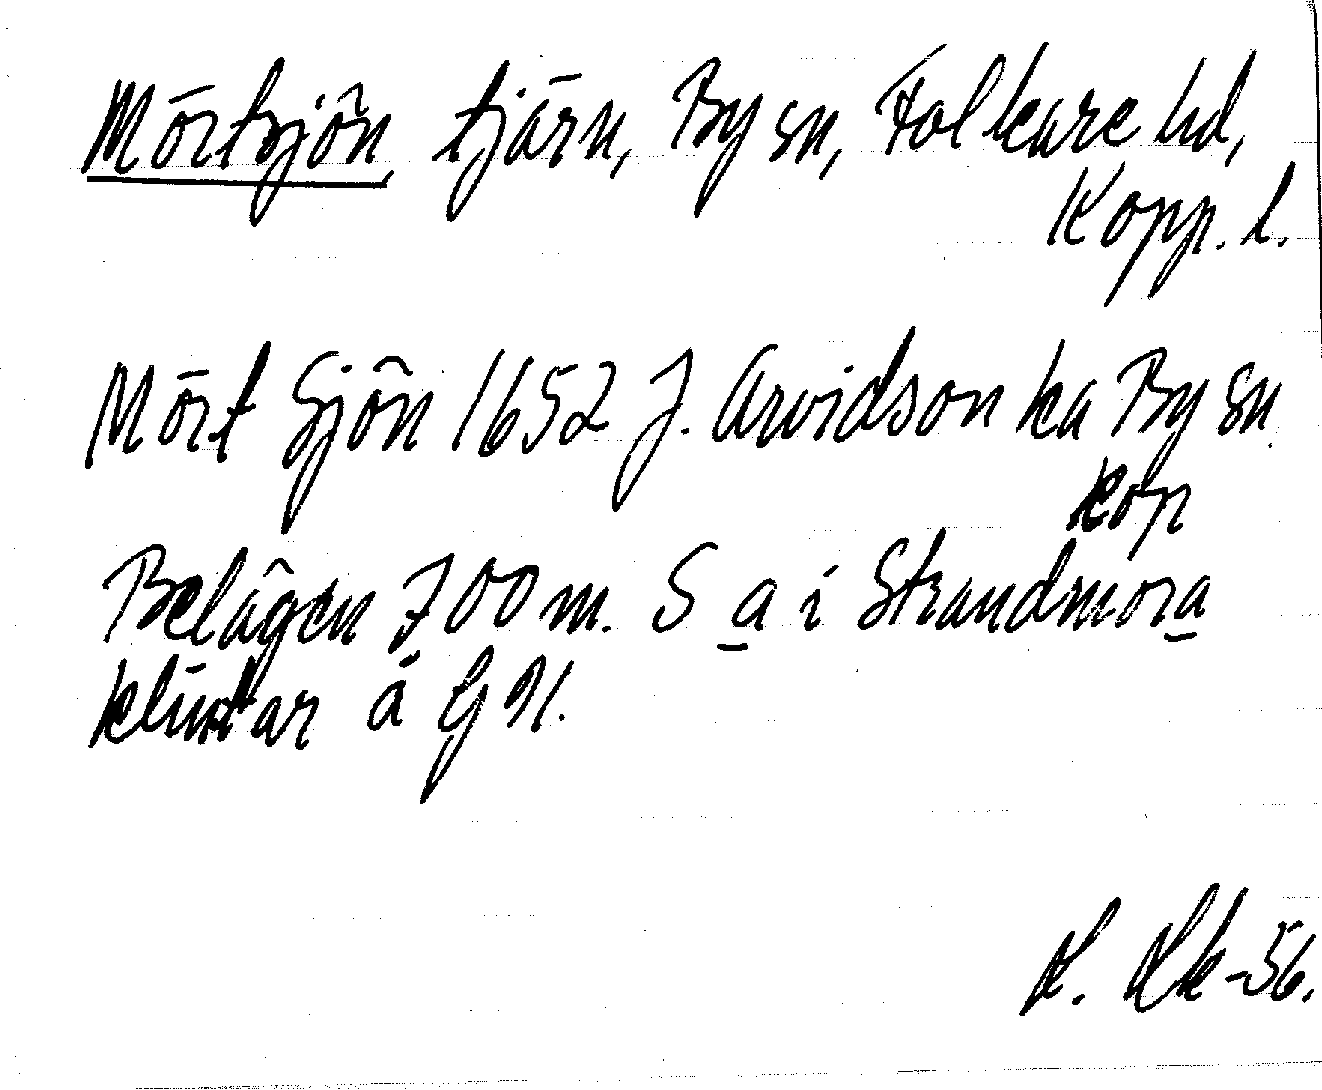 Mörtsjön, tjärn, By sn, Folkare hd,
Kopp. l.
Mört Sjön 1652 J. Arvidson ka By sn
kop
Belägen 700 m. S a i Strandmora
klintar å GK.